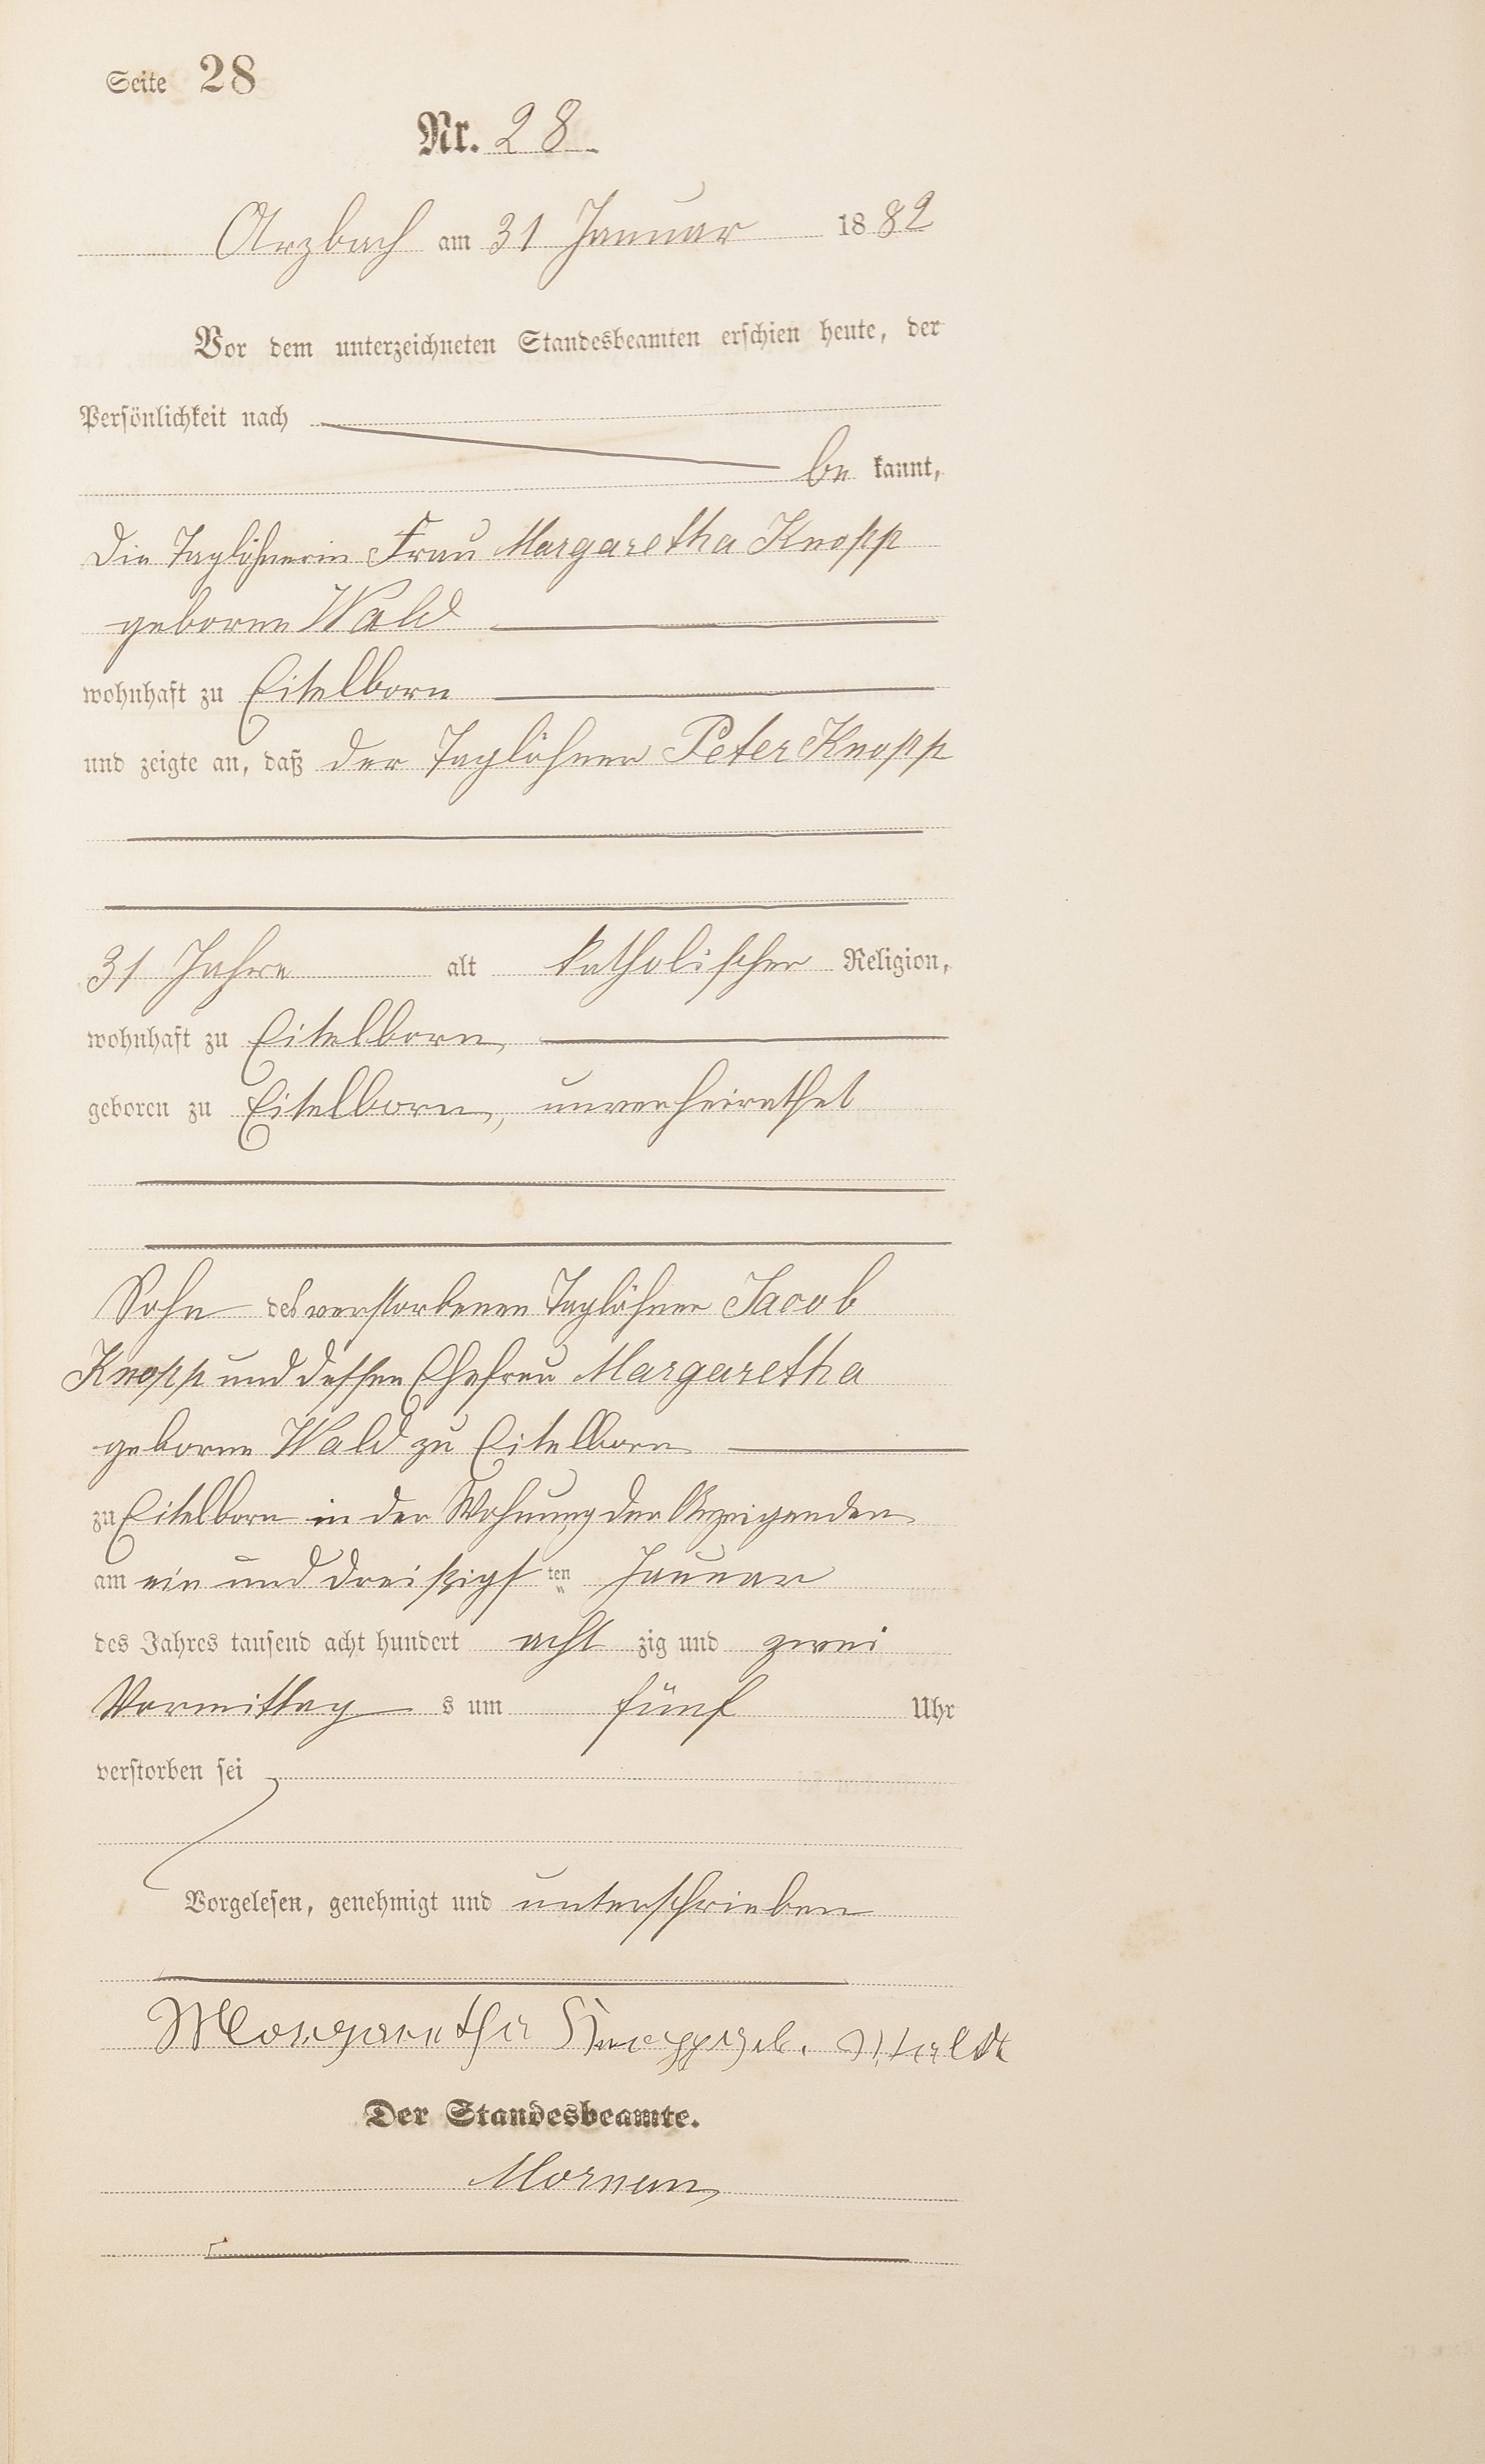 Seite 28
Nr. 28
Arzbach am 31 Januar 1882
Vor dem unterzeichneten Standesbeamten erschien heute, der
Persönlichkeit nach
be kannt,
die Taglöhnerin Frau Margaretha Knopp
geborne Wald
wohnhaft zu Eitelborn
und zeigte an, daß der Taglöhner Peter Knopp
31 Jahre alt katholischer Religion,
wohnhaft zu Eitelborn,
geboren zu Eitelborn, unverheirathet
Sohn des verstorbenen Taglöhner Jacob
Knopp und dessen Ehefrau Margaretha
geborne Wald zu Eitelborn
zu Eitelborn in der Wohnung der Anzeigenden
am ein und dreißigsten Januar
des Jahres tausend acht hundert acht zig und zwei
Vormittag s um fünf Uhr
verstorben sei
Vorgelesen, genehmigt und unterschrieben
Margaretha Knopp geb. Waldt
Der Standesbeamte.